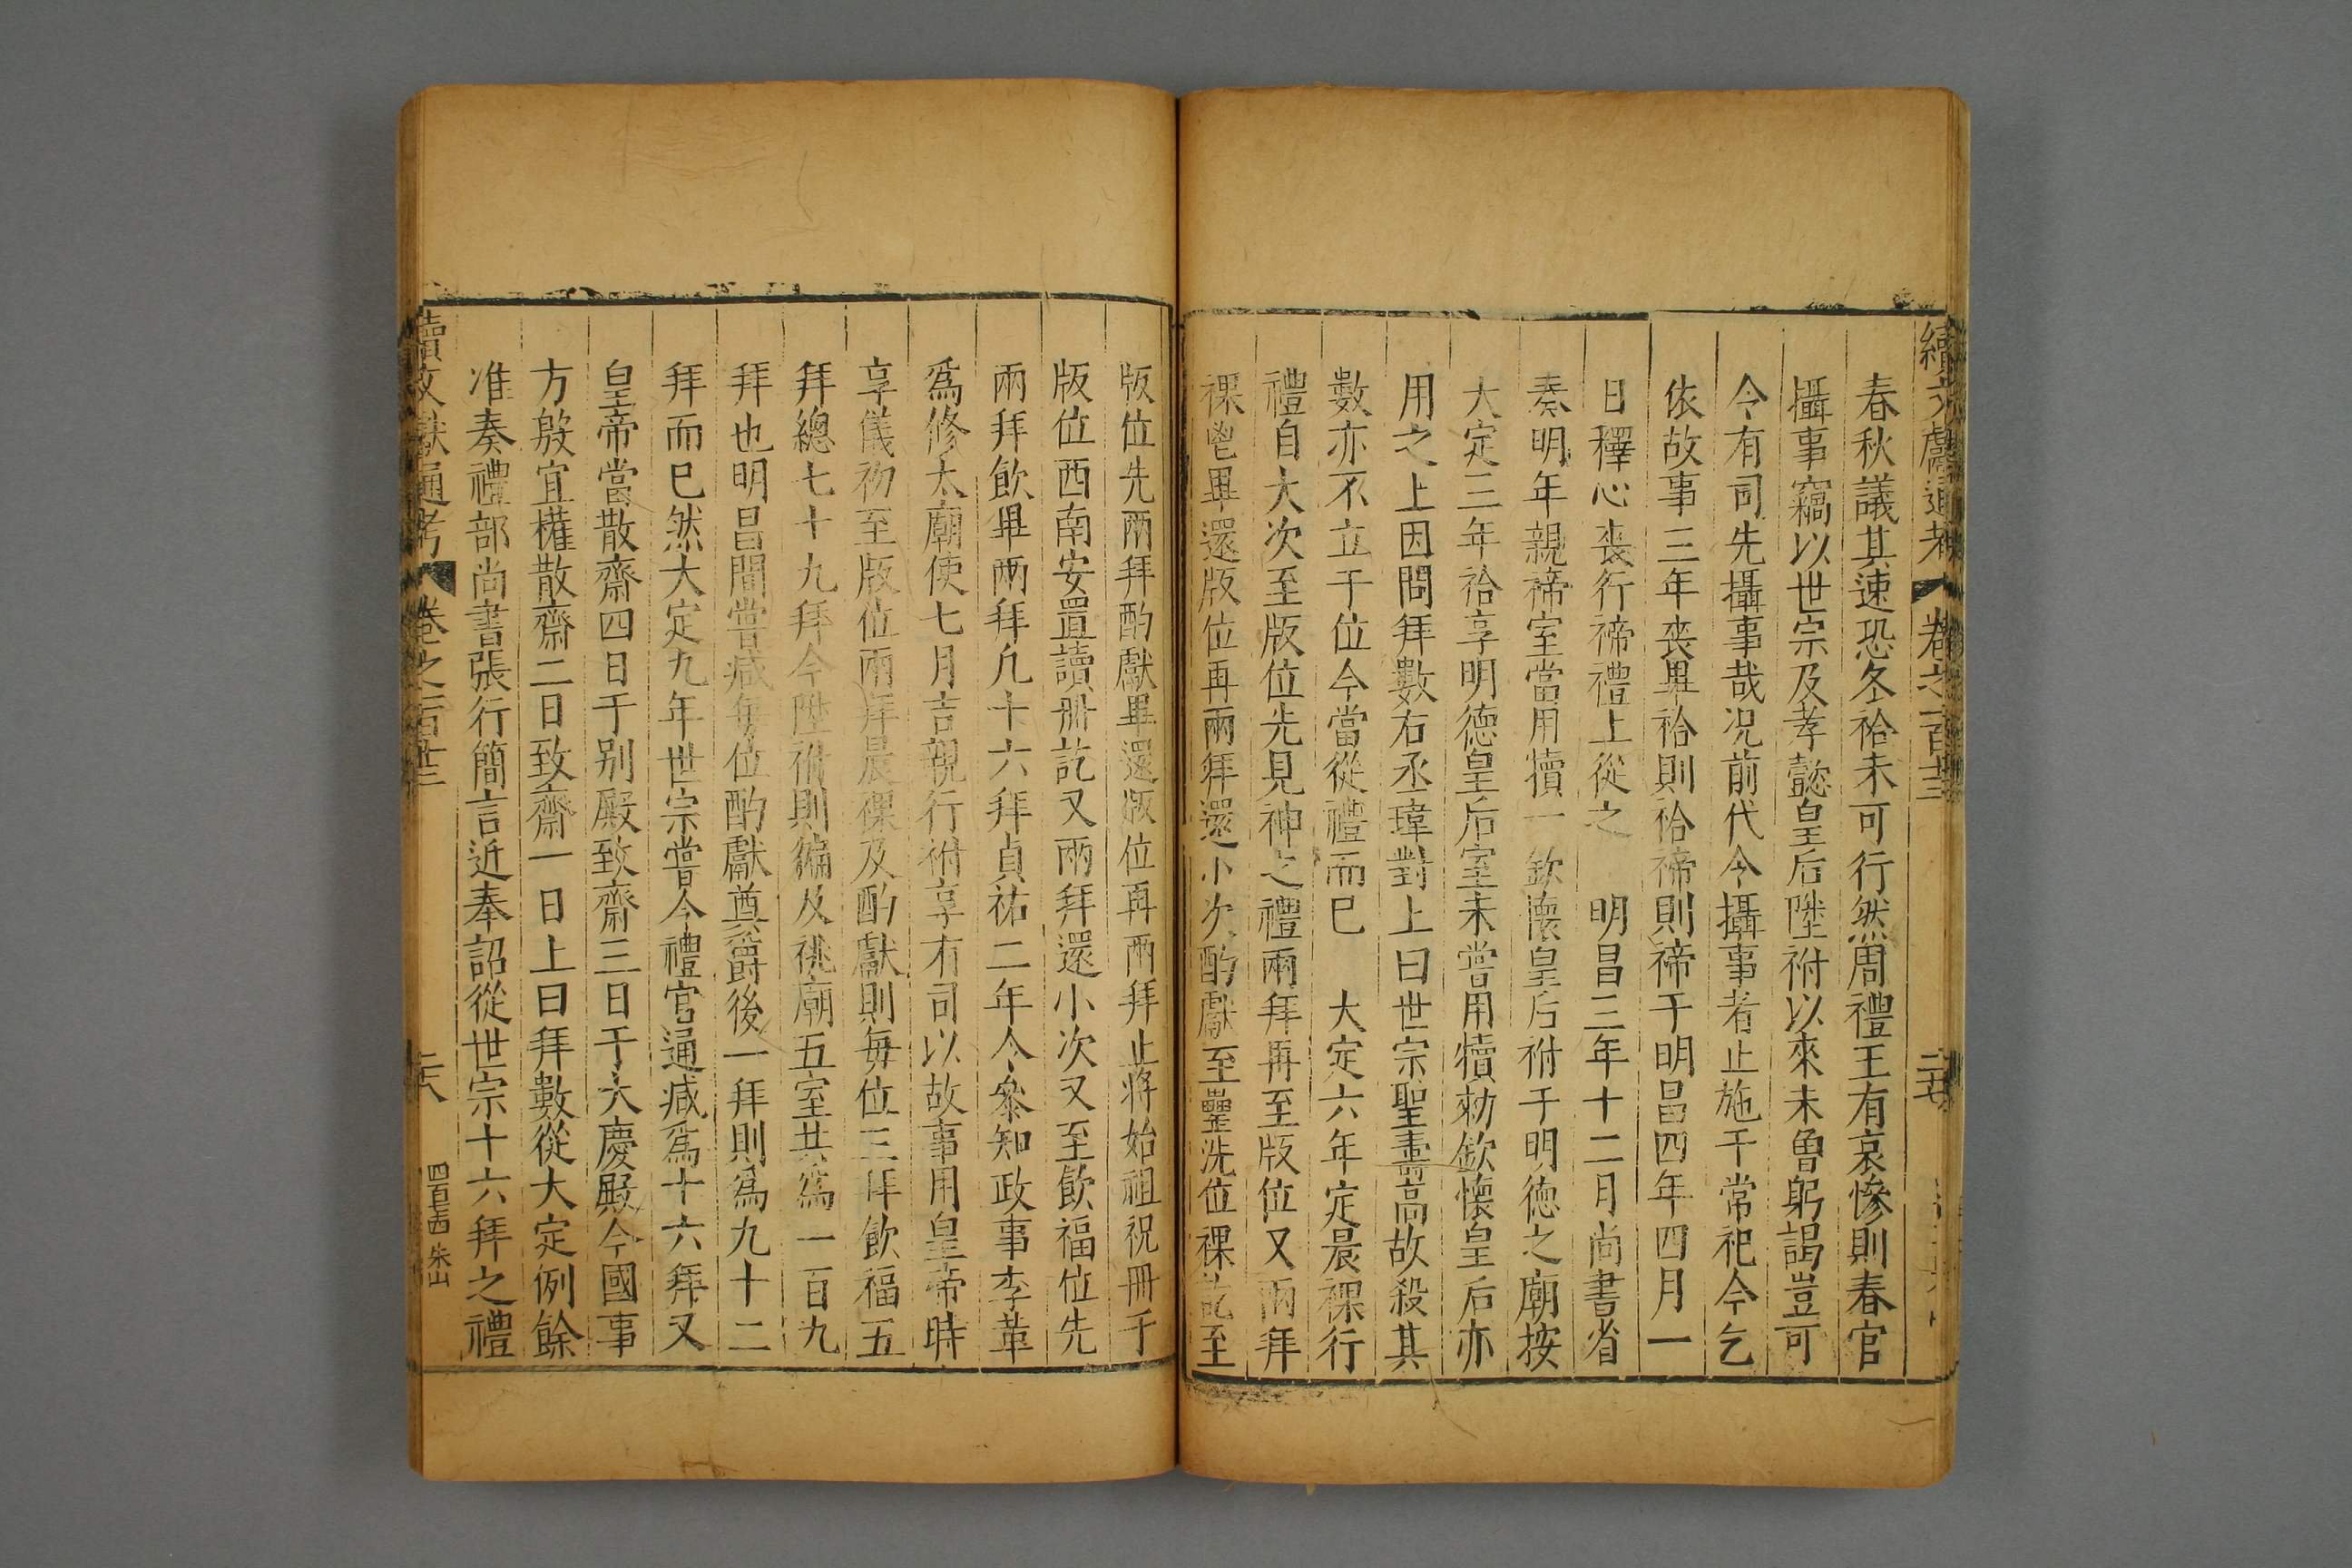 續文獻通考 卷之一百廿三 二十七
春秋議其速恐冬祫未可行然周禮王有哀慘則春官
攝事竊以世宗及孝懿皇后陞祔以來未魯躬謁豈可
令有司先攝事哉况前代令攝事者止施干常祀今乞
依故事三年丧畢祫則祫禘則禘于明昌四年四月一
日釋心丧行禘禮上從之 明昌三年十二月尚書省
奏明年親禘室當用犢一欽懷皇后祔于明徳之廟按
大定三年祫享明徳皇后室未嘗用犢勑欽懐皇后亦
用之上因問拜數右丞瑋對上曰世宗聖壽高故殺其
數亦不立于位今當從禮而巳 大定六年定晨祼行
禮自大次至版位先見神之禮兩拜再至版位又兩拜
祼鬯畢還版位再兩拜還小次酌獻至罍洗位祼訖至
版位先兩拜酌獻畢還版位再兩拜止将始祖祝冊于
版位西南安置讀冊訖又兩拜還小次又至飲福位先
兩拜飲畢兩拜凡十六拜貞祐二年令參知政事李革
爲修太廟使七月吉親行祔享有司以故事用皇帝時
享儀初至版位兩拜晨祼及酌獻則毎位三拜飲福五
拜總七十九拜今陞祔則徧及祧廟五室共爲一百九
拜也明昌間嘗减毎位酌獻奠爵後一拜則爲九十二
拜而巳然大定九年世宗嘗令禮官通减爲十六拜又
皇帝當散齋四日于别殿致齋三日于大慶殿今國事
方殷宜權散齋二日致齋一日上曰拜數從大定例餘
准奏禮部尚書張行簡言近奉詔從世宗十六拜之禮
續文獻通考 卷之一百廿三 二十八 朱山